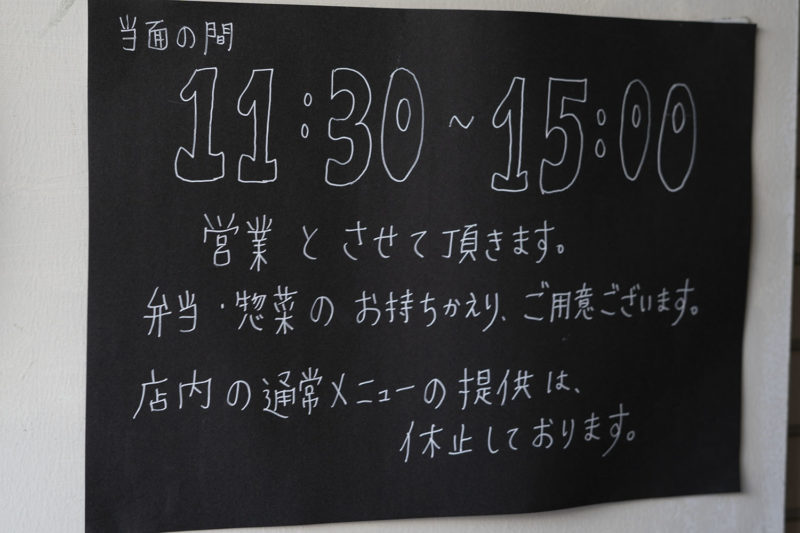 当面の間
11:30~15:00
営業とさせて頂きます。
弁当・惣菜のお持ちかえり、ご用意ございます。
店内の通常メニューの提供は、
休止しております。